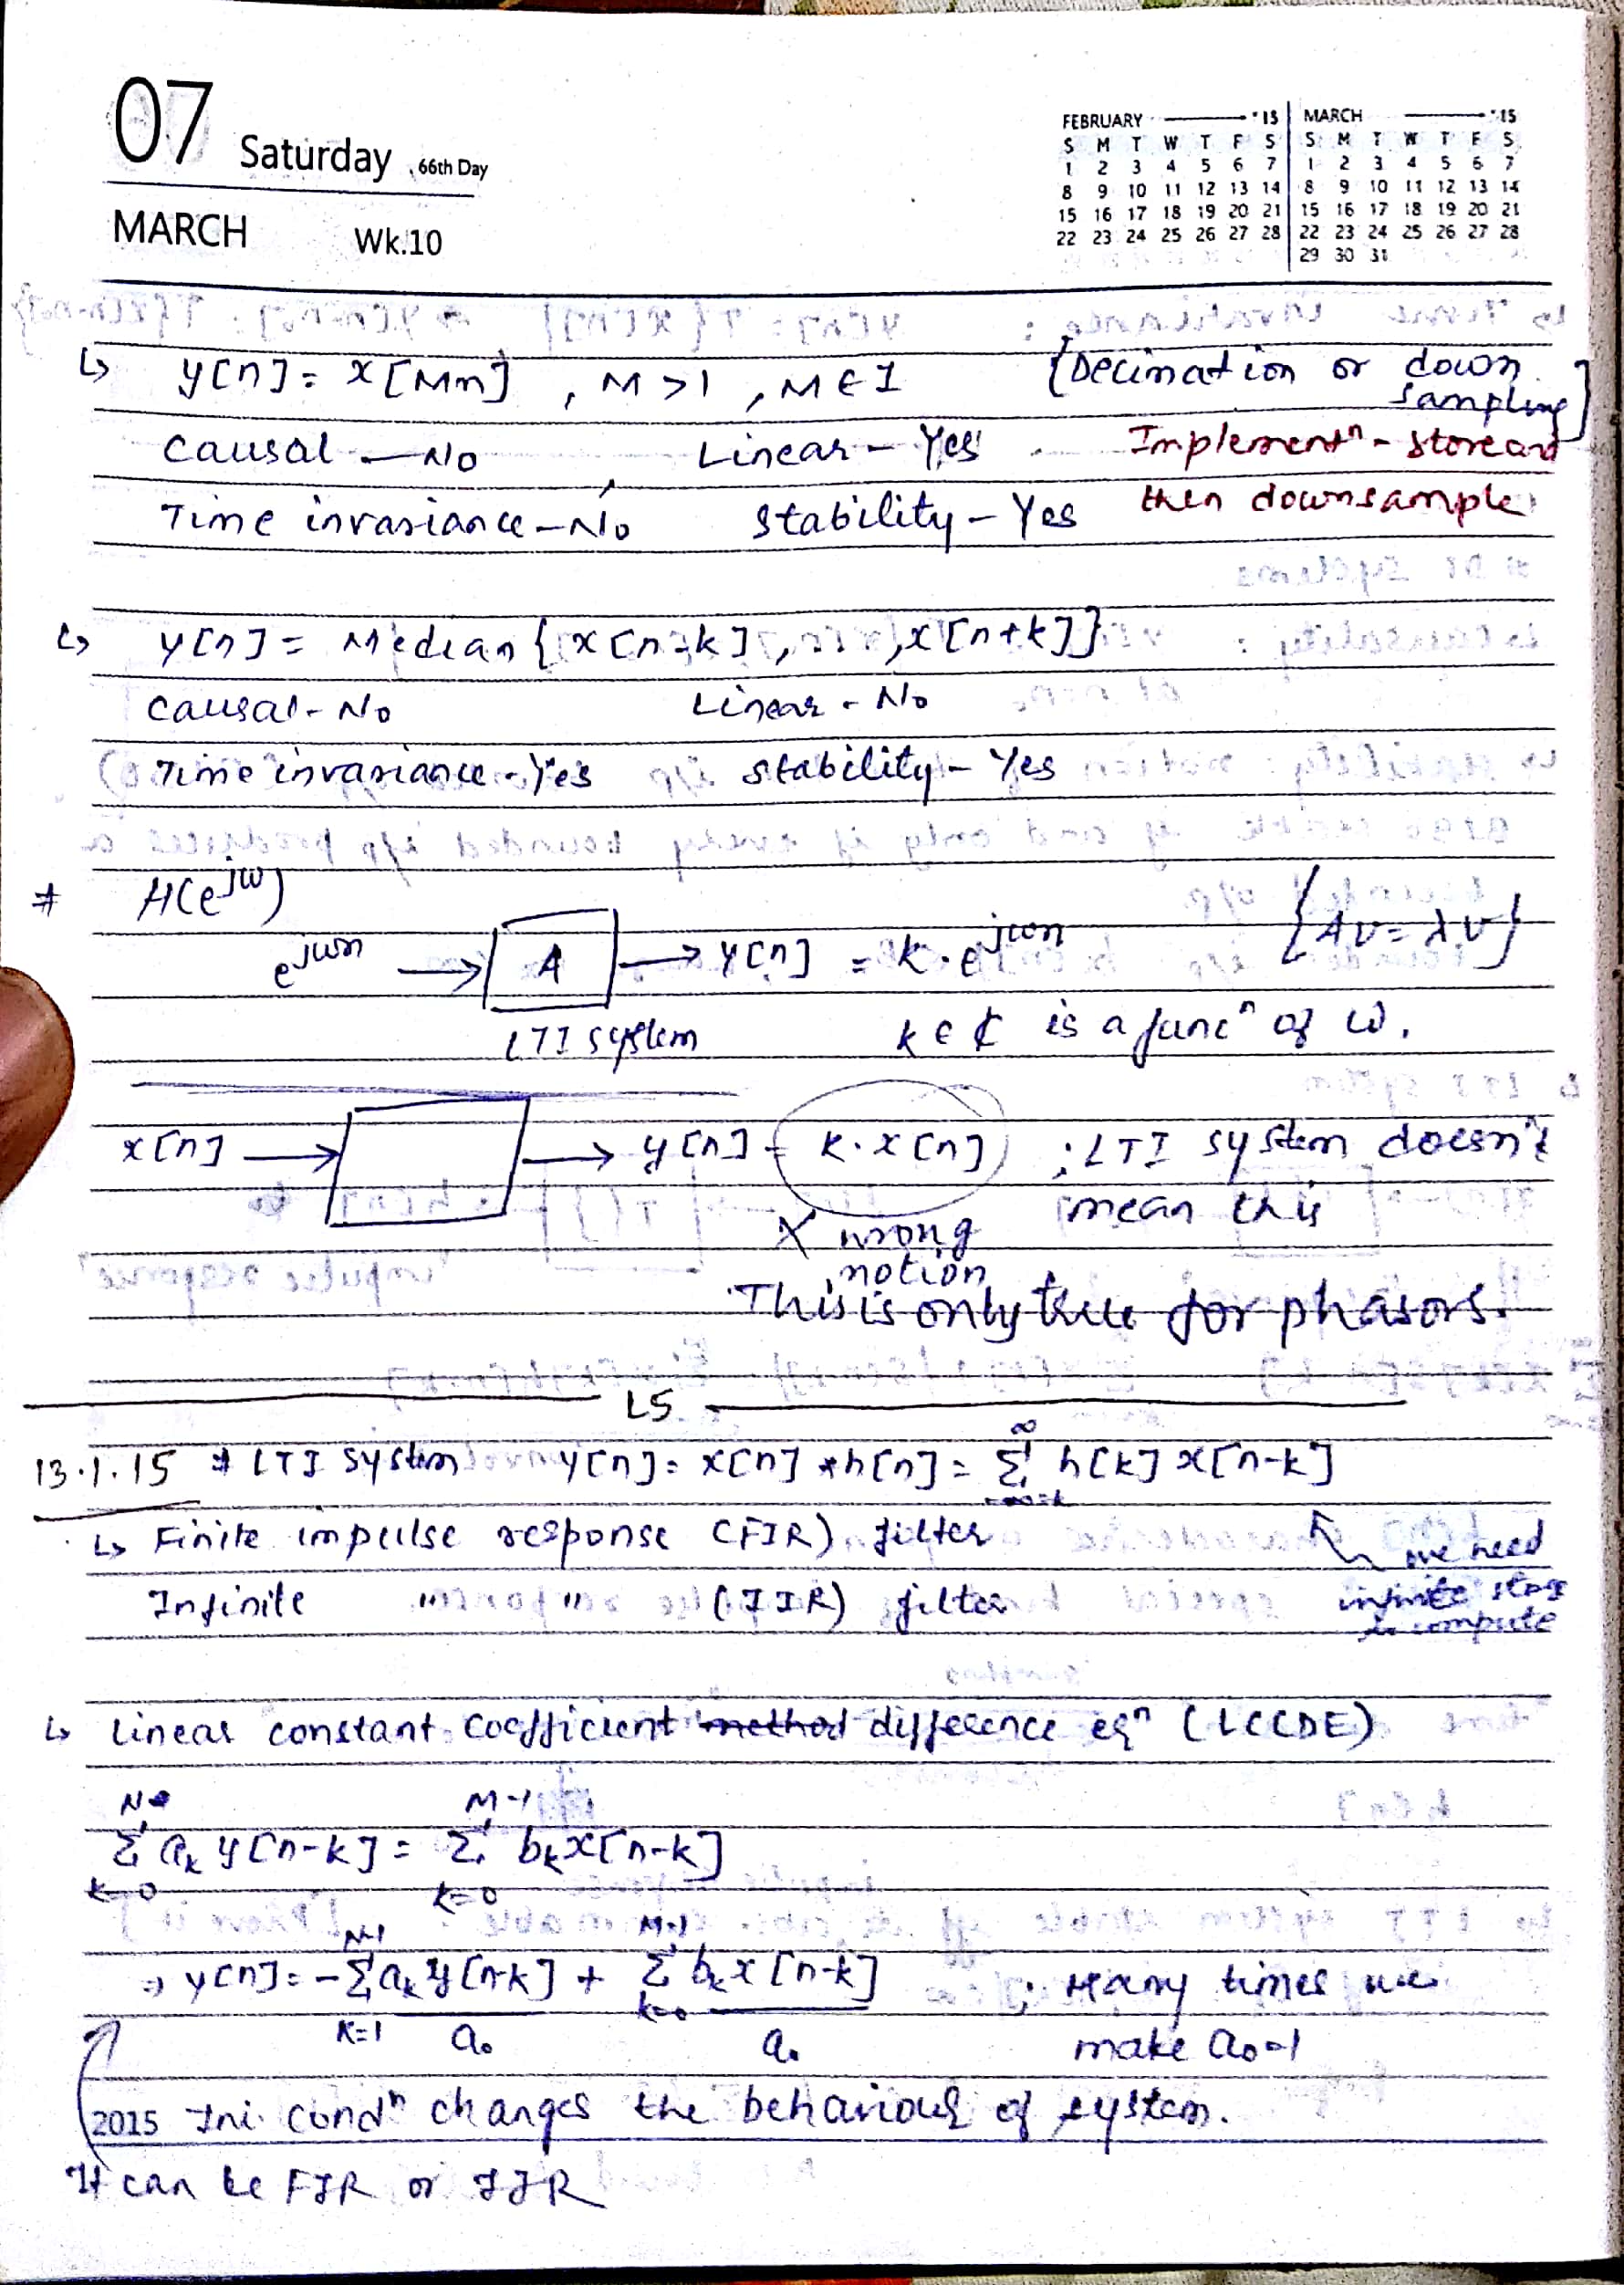 07 Saturday , 66th Day
MARCH Wk.10
FEBRUARY '15
S M T W T F S
1 2 3 4 5 6 7
8 9 10 11 12 13 14
15 16 17 18 19 20 21
22 23 24 25 26 27 28
MARCH '15
S M T W T F S
1 2 3 4 5 6 7
8 9 10 11 12 13 14
15 16 17 18 19 20 21
22 23 24 25 26 27 28
29 30 31
↳ y[n] = x[Mn] , M > 1 , M ∈ I {Decimation or down sampling}
Causal — No Linear - Yes Implementⁿ - store and
Time invariance - No Stability - Yes then downsample
↳ y[n] = Median {x[n-k], ..., x[n+k]}
Causal - No Linear - No
Time invariance - Yes stability - Yes
# H(e^jω)
e^jωn → A → y[n] = k.e^jωn {Av = λv}
LTI system k ∈ ₵ is a funcⁿ of ω.
x[n] → → y[n] = k.x[n] ; LTI system doesn't
mean this
X wrong
notion
This is only true for phasors.
L5
13.1.15 # LTI system y[n] = x[n] * h[n] = Σ_{k=-∞}^{∞} h[k] x[n-k]
↳ Finite impulse response (FIR) filter
we need
Infinite " " (IIR) filter infinite stage
to compute
↳ Linear constant coefficient method difference eqⁿ (LCCDE)
Σ_{k=0}^{N} a_k y[n-k] = Σ_{k=0}^{M-1} b_k x[n-k]
⇒ y[n] = - Σ_{k=1}^{N-1} a_k y[n-k] / a₀ + Σ_{k=0}^{M-1} b_k x[n-k] / a₀ ; Many times we
make a₀=1
2015 Ini. condⁿ changes the behaviour of system.
It can be FIR or IIR